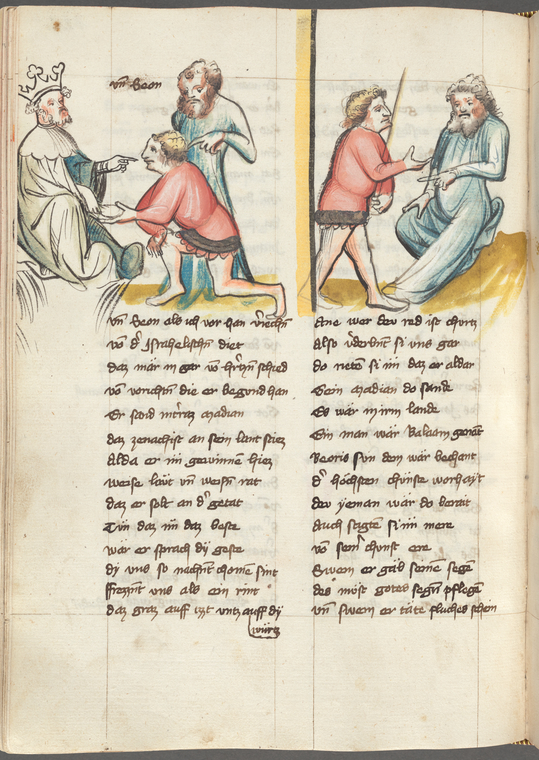 vn̄ Seon
vn̄ Seon als ich vor han v'iechn̄
von d' Israhelischn̄ diet
daz mär in gar von h'rtzn̄ schied
von vorichtn̄ die er begund han
Er sand
Madian
daz zenachst an sein lant stiez
Alda er im gewinnen hiez
weise läut vn̄ weisn̄ rat
daz er solt an d' getat
Tün daz im daz beste
wär er sprach dÿ geste
dÿ vns so nachnt chomē sint
frezzent vns als ein rint
daz graz auff vntz auff dÿ
würtz
Ane wer dew red ist churtz
also v'derbnt si vns gar
do rietē si im daz er aldar
Gein Madian do sande
Es wär in irm lande
Ein man wär Balaam genāt
Beoris sun dem wär bechant
d' höchsten chünste worhayt
dew yeman wär do berait
Auch sagtē si im mere
von sein' chunst ere
Swem er gäb seinē segē
des müst gotes segn̄ pflegē
vn̄ swem er täte fluches schein